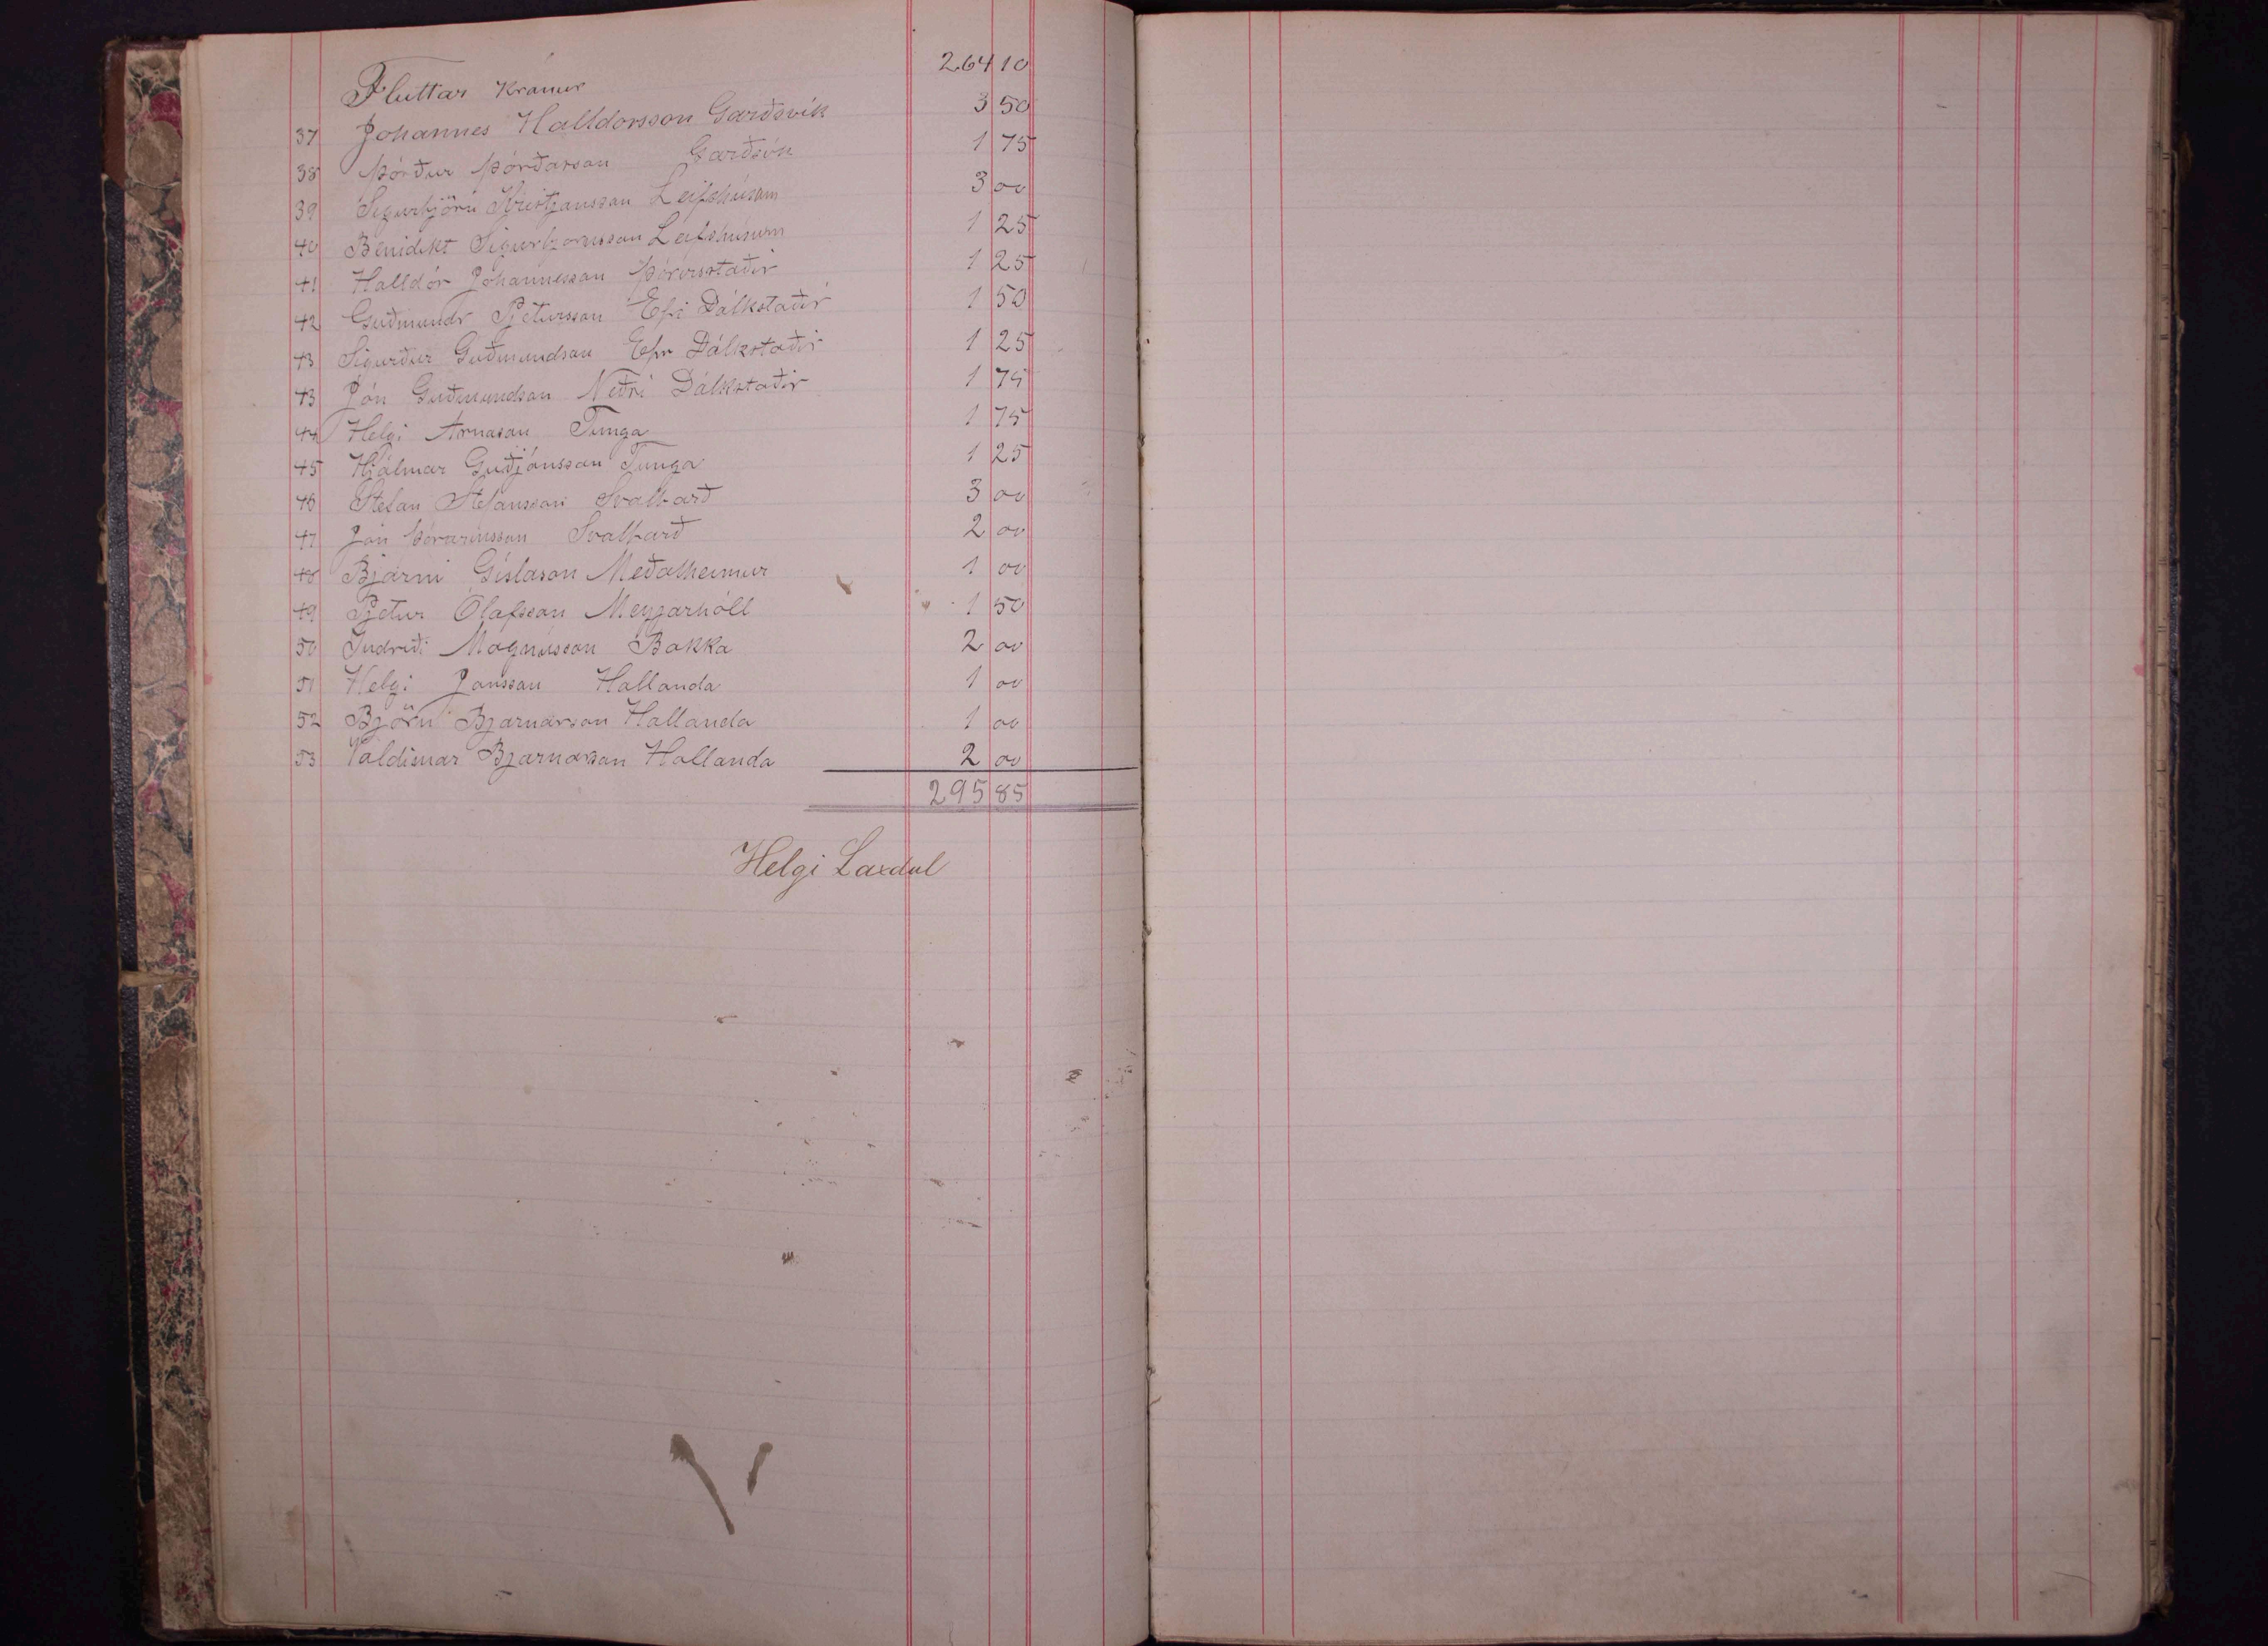 Fluttar Krónur 264 10
37 Johannes Halldorsson Garðsvík 3 50
38 Þórður Þórðarson Garðsvík 1 75
39 Sigurbjörn Kristjansson Leifshúsum 3 00
40 Benidikt Sigurbjornsson Leifshúsum 1 25
41 Halldór Johannesson Þórisstaðir 1 25
42 Guðmundr Pjetursson Efri Dálkstaðir 1 50
43 Sigurður Guðmundson Efri Dálkstaðir 1 25
43 Jón Guðmundson Neðri Dálkstaðir 1 75
44 Helgi Arnason Tunga 1 75
45 Hjálmar Guðjónsson Tunga 1 25
46 Stefan Stefansson Svalbarð 3 00
47 Jón Þórarinsson Svalbarð 2 00
48 Bjarni Gíslason Meðalheimur 1 00
49 Pjetur Ólafsson Meyjarhóll 1 50
50 Indriði Magnússon Bakka 2 00
51 Helgi Jonsson Hallanda 1 00
52 Björn Bjarnarson Hallanda 1 00
53 Valdimar Bjarnarson Hallanda 2 00
295 85
Helgi Laxdal